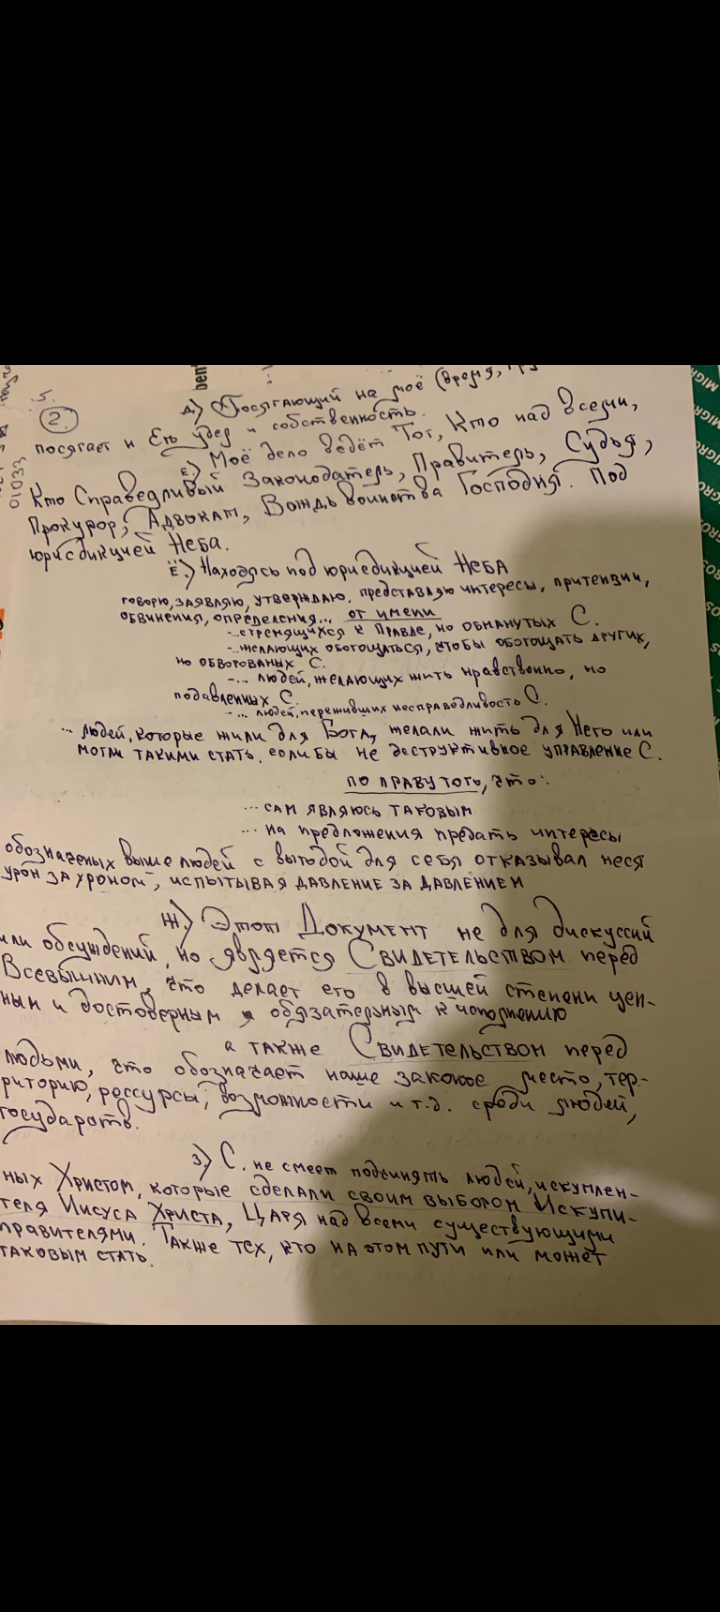 5.
2.
Д.) Посягающий на моё (время,
посягает и Его удел и собственность.
Е.) Моё дело ведёт Тот, Кто над всеми,
Кто Справедливый Законодатель, Правитель, Судья,
Прокурор, Адвокат, Вождь воинства Господня. Под
юрисдикцией Неба.
Ё.) Находясь под юриедикцией НЕБА
говорю, заявляю, утверждаю, представляю интересы, притензии,
обвинения, определения... от имени
-...стремящихся к Правде, но обманутых С.
-...желающих обогощаться, чтобы обогощать других,
но обворованых С.
-... людей, желающих жить нравственно, но
подавленных С.
-... людей, переживших несправедливость С.
... людей, которые жили для Бога, желали жить для Него или
могли такими стать, если бы не деструктивное управление С.
по праву того, что:
... сам являюсь таковым
... на предложения предать интересы
обозначеных выше людей с выгодой для себя отказывал неся
урон за уроном, испытывая давление за давлением
Ж.) Этот Документ не для дискуссий
или обсуждений, но является Свидетельством перед
Всевышним, что делает его в высшей степени цен-
ным и достоверным и обязательным к исполнению
а также Свидетельством перед
людьми, что обозначает наше законое место, тер-
риторию, рессурсы, возможности и т.д. среди людей,
государств.
З.) С. не смеет подчинять людей, искуплен-
ных Христом, которые сделали своим выбором Искупи-
теля Иисуса Христа, Царя над всеми существующими
правителями. Также тех, кто на этом пути или может
таковым стать.
01033
ben
MIGRO
MIGROS